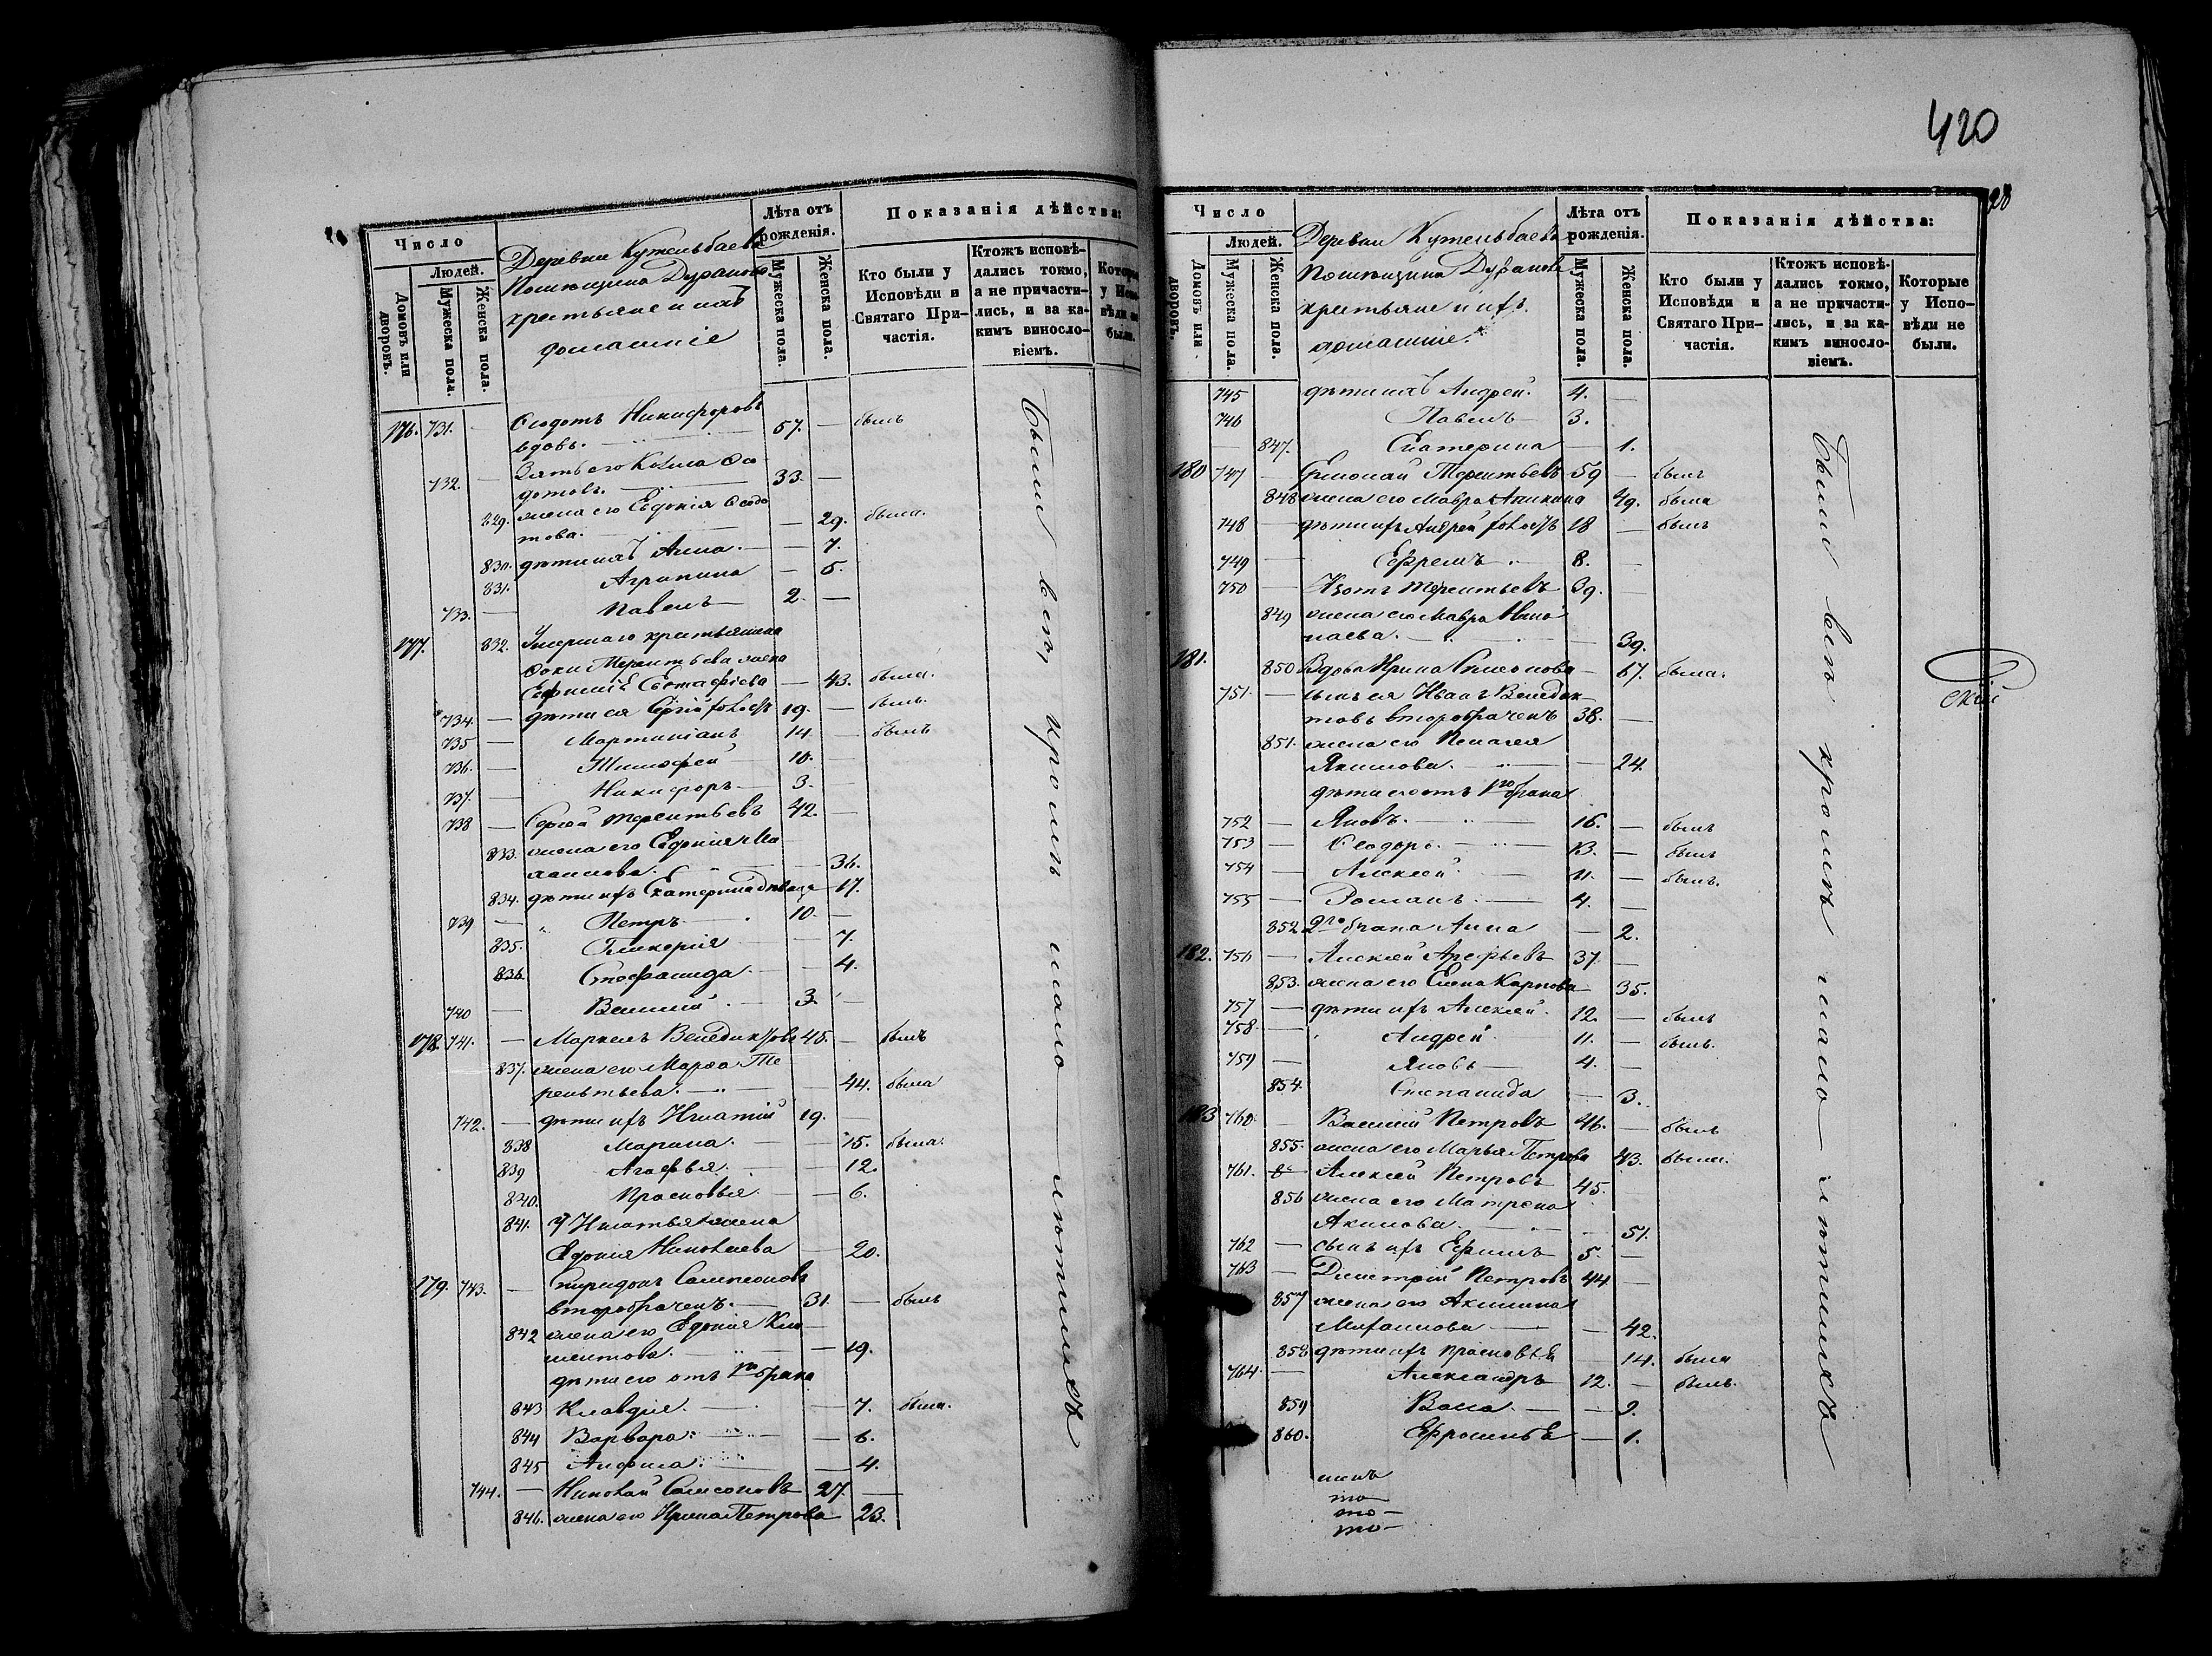 420
28
Число
Людей.
Домовъ или дворовъ.
Мужеска пола.
Женска пола.
Деревни Кутельбаева
Помѣщика Дуранова
крестьяне и ихъ
домашніе
Лѣта отъ рожденія.
Мужеска пола.
Женска пола.
Показанія дѣйства:
Кто были у Исповѣди и Святаго Причастія.
Ктожъ исповѣдались токмо, а не причастились, и за какимъ винословіемъ.
176. 731. Ѳедотъ Никифоровъ
вдовъ. 57. былъ
732. Зять его Козма Ѳедотовъ. 33.
829. жена его Евдокія Ѳедотова. 29. была.
830. дѣти ихъ Анна. 7.
831. Агрипина 5.
733. Павелъ 2.
177. 832. Умершаго крестьянина
Терентьева жена
Евстафіева 43. была.
734. дѣти ея Сергій холостъ 19. былъ.
735 Мартиніанъ 14. былъ
736. Тимофей 10.
737. Никифоръ 3.
738 Сергей Терентьевъ 42.
833. жена его Евдокія 36.
834. дѣти ихъ Екатерина дѣвица 17.
739 Петръ 10.
835. Гликерія 7.
836. Стефанида. 4.
740 Василій. 3.
178. 741. Маркелъ Венедиктовъ 45. былъ
837. жена его Марѳа Терентьева. 44. была
742. дѣти ихъ Игнатій 19.
838 Марина. 15. была.
839 Агафья. 12.
840. Прасковья. 6.
841. У Игнатья жена
Евдокия Николаева 20.
179. 743. Спиридонъ Сампсоновъ
второбраченъ. 31. былъ
842 жена его Евдокія Климентова. 19.
дѣти его отъ 1го брака
843 Клавдія. 7. была.
844 Варвара. 6.
845 Анфиса. 4.
744. Николай Самсоновъ 27.
846. жена его Ирина Петрова 23.
были всѣ, кромѣ мало лѣтныхъ
Число
Людей.
Домовъ или дворовъ.
Мужеска пола.
Женска пола.
Деревни Кутельбаева
Помѣщика Дуранова
крестьяне и ихъ
домашніе.
Лѣта отъ рожденія.
Мужеска пола.
Женска пола.
Показанія дѣйства:
Кто были у Исповѣди и Святаго Причастія.
Ктожъ исповѣдались токмо, а не причастились, и за какимъ винословіемъ.
Которые у Исповѣди не были.
745 дѣти ихъ Андрей. 4.
746 Павелъ 3.
847. Екатерина 1.
180 747 Ермолай Терентьевъ 59 былъ
848 жена его Мавра 49. была
748 дѣти ихъ Андрей холостъ 18 былъ
749 Ефремъ 8.
750 Изотъ Терентьевъ 39.
849 жена его Мавра Николаева. 39.
181. 850 Вдова Ирина Симонова 67. была.
751. сынъ ея Иванъ Венедиктовъ второбраченъ 38.
851. жена его Пелагея
Якимова. 24.
дѣти его отъ 1го брака
752 Яковъ. 16. былъ
753 Ѳеодоръ. 13. былъ
754 Алексей 11. былъ.
755 Романъ. 4.
852 2го брака Анна 2.
182. 756 Алексей Арефьевъ 37.
853. жена его Елена Карпова 35.
757 дѣти ихъ Алексей. 12. былъ
758. Андрей 11. былъ.
759 Яковъ 4.
854. Степанида 3.
183 760. Василій Петровъ 46. былъ
855. жена его Марья Петрова 43. была.
761. Алексей Петровъ 45.
856 жена его Матрена
Акимова. 51.
762 сынъ ихъ Ефимъ 5.
763 Димитрій Петровъ 44.
857 жена его Акилина
Михайлова 42.
858 дѣти ихъ Прасковья 14. была
764. Александръ 12. былъ.
859 Васса. 9.
860. Ефросинья 1.
были всѣ кромѣ мало лѣтныхъ
скій
то
то
то